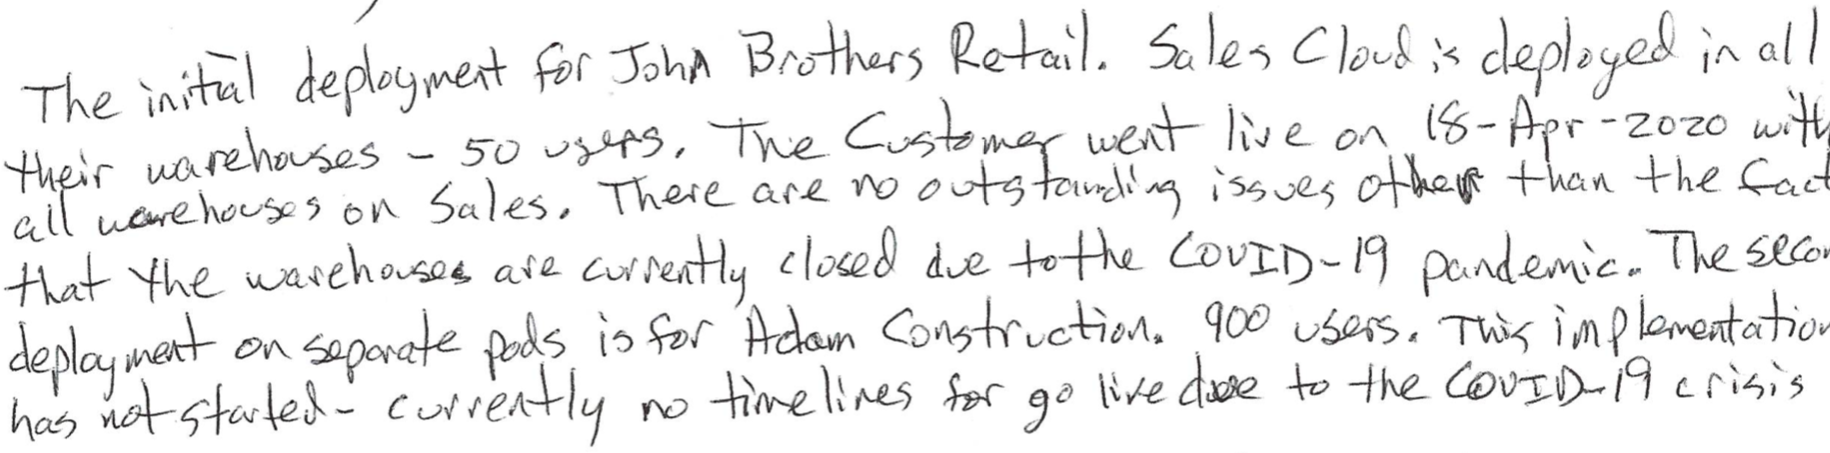 The initial deployment for John Brothers Retail. Sales Cloud is deployed in all
their warehouses - 50 users. The Customer went live on 18-Apr-2020 with
all warehouses on Sales. There are no outstanding issues other than the fact
that the warehouses are currently closed due to the COVID-19 pandemic. The secon
deployment on separate pods is for Adam Construction. 900 users. This implementation
has not started - currently no timelines for go live due to the COVID-19 crisis